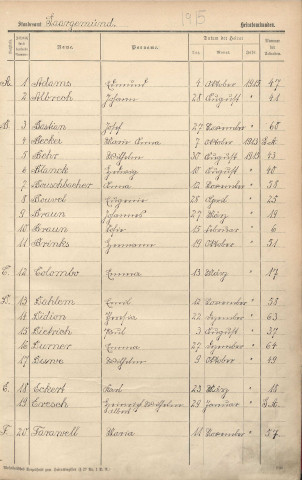 Standesamt Saargemünd. 1915 Heiratsurkunden.
Name. Vorname. Datum der Heirat
Tag Monat Jahr
A. 1 Adams Edmund 4 Oktober 1915 47
2 Albrech Johann 28 August " 41
B. 3 Bastian Josef 27 November " 60
4 Becker Maria Anna 7 Oktober 1913 B.A.
5 Behr Wilhelm 30 August 1915 43
6 Blanck Hedwig 17 August " 40
7 Anna 12 November " 58
8 Bouvel Eugenie 28 April " 25
9 Braun Johannes 27 März " 19
10 Braun 15 Februar " 6
11 Brinks Hermann 19 Oktober " 51
C. 12 Colombo Emma 13 März " 17
D. 13 Dahlem Emil 12 November " 58
14 Didion 22 Dezember " 63
15 Dietrich Paul 3 August " 37
16 Durner Emma 27 Dezember " 64
17 Wilhelm 9 Oktober " 49
E. 18 Eckert Karl 23 März " 18
19 Eresch Heinrich Wilhelm Albert 29 Januar " B.A.
F. 20 Farawell Maria 11 November " 57